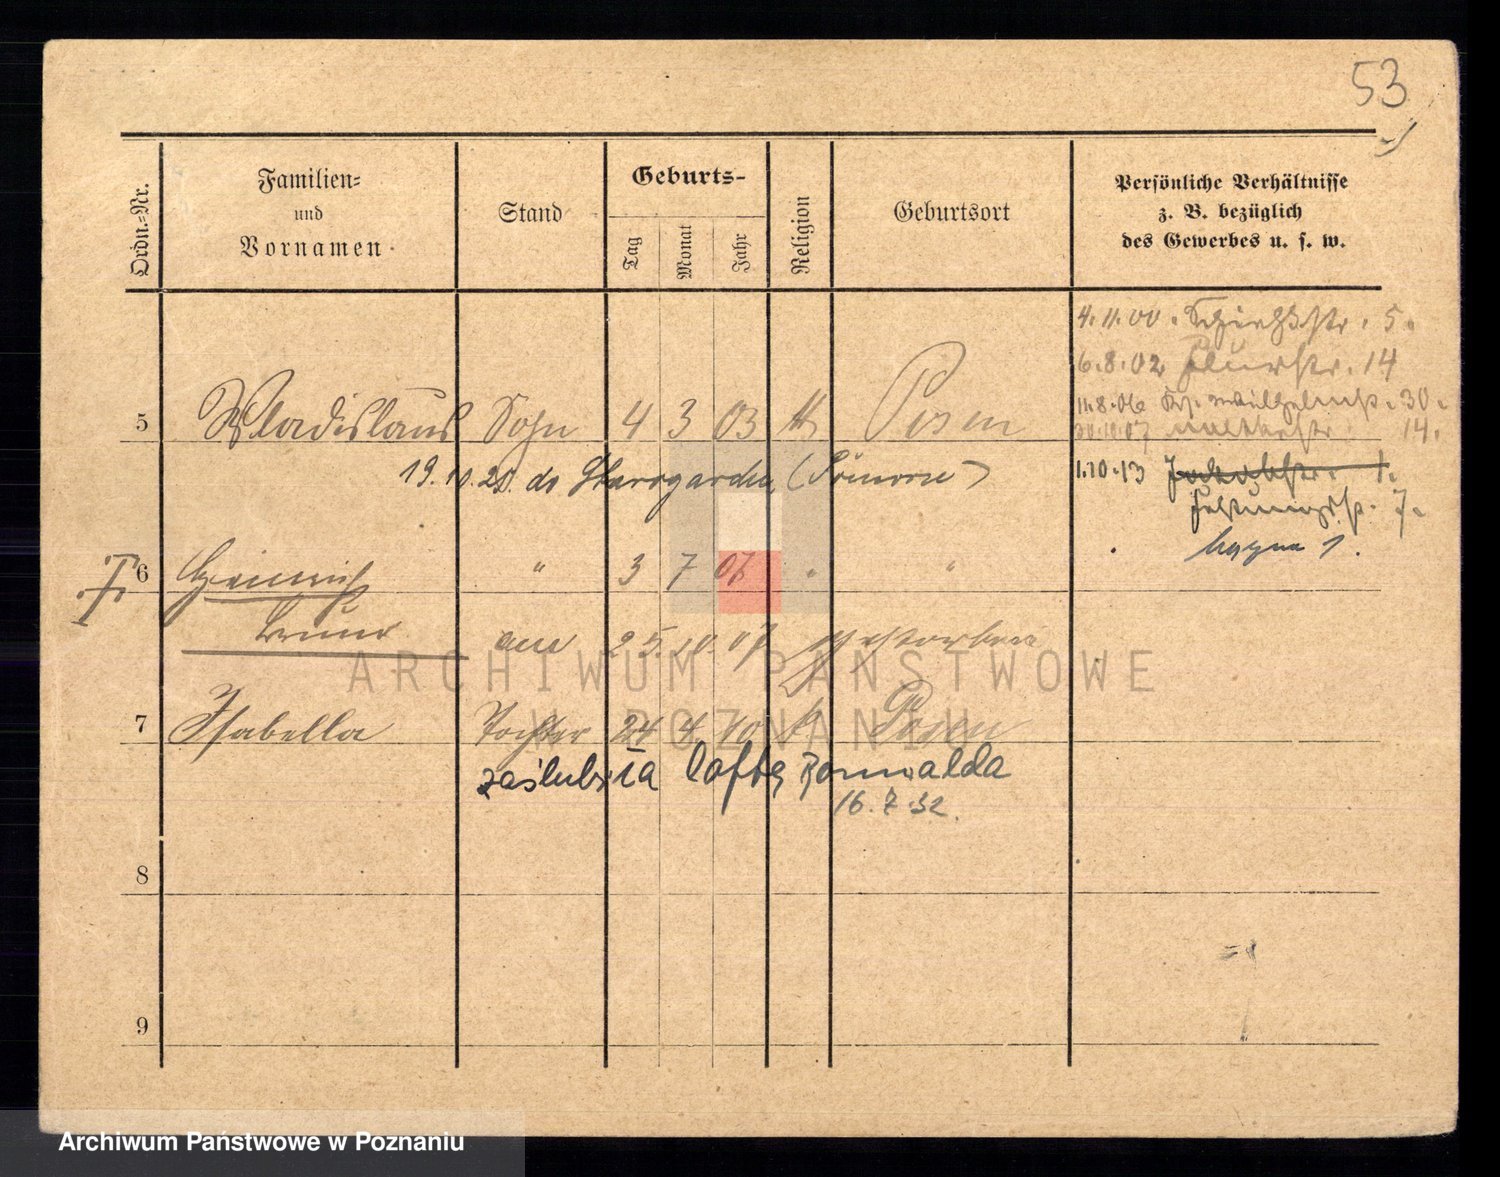 53
Ordn.-Nr.
Familien-
und
Vornamen
Stand
Geburts-
Tag
Monat
Jahr
Religion
Geburtsort
Persönliche Verhältnisse
z. B. bezüglich
des Gewerbes u. s. w.
4.11.00. 5.
6.8.02 14
11.8.06 30.
20.10.07 14.
5 Wladislaus Sohn 4 3 03 k Posen
19.10.28. do Starogardu (Pomorze)
1.10.13 1.
7.
6 Heinrich " 3 7 07 " "
1.
Bruno am 25.10.07 gestorben
7 Isabella Tochter 24 4 10 k Posen
zaślubiła Romualda
16.7.32.
8
9
ARCHIWUM PAŃSTWOWE
W POZNANIU
Archiwum Państwowe w Poznaniu